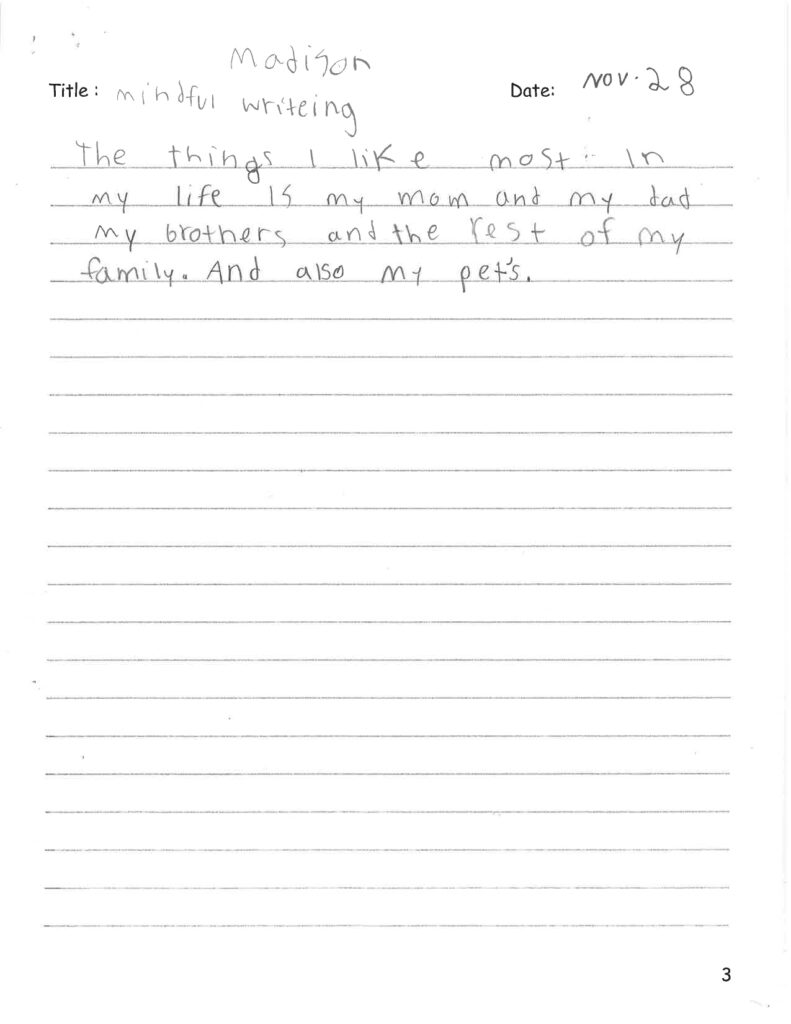 Madison
Title : mindful writeing
Date: Nov. 28
The things I like most in
my life is my mom and my dad
my brothers and the rest of my
family. And also my pet's.
3